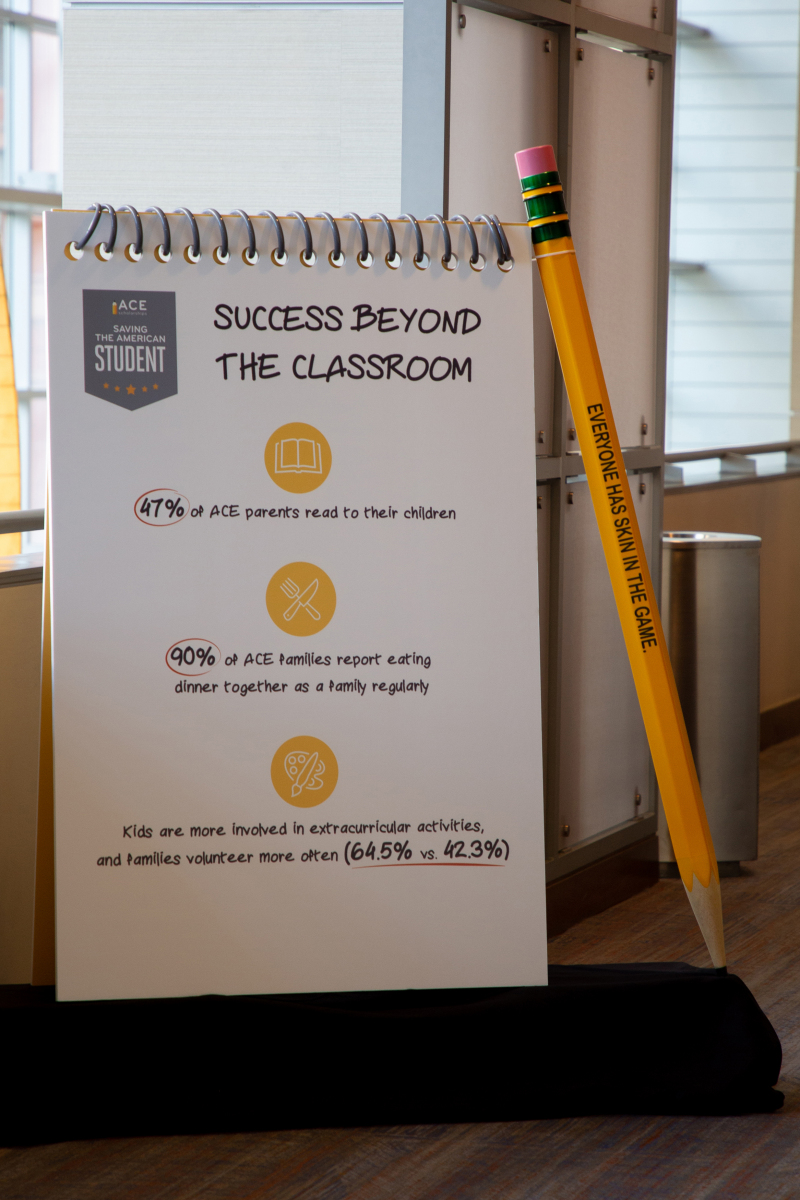 ACE
scholarships
SAVING
THE AMERICAN
STUDENT
SUCCESS BEYOND
THE CLASSROOM
47% of ACE parents read to their children
90% of ACE families report eating
dinner together as a family regularly
Kids are more involved in extracurricular activities,
and families volunteer more often (64.5% vs. 42.3%)
EVERYONE HAS SKIN IN THE GAME.